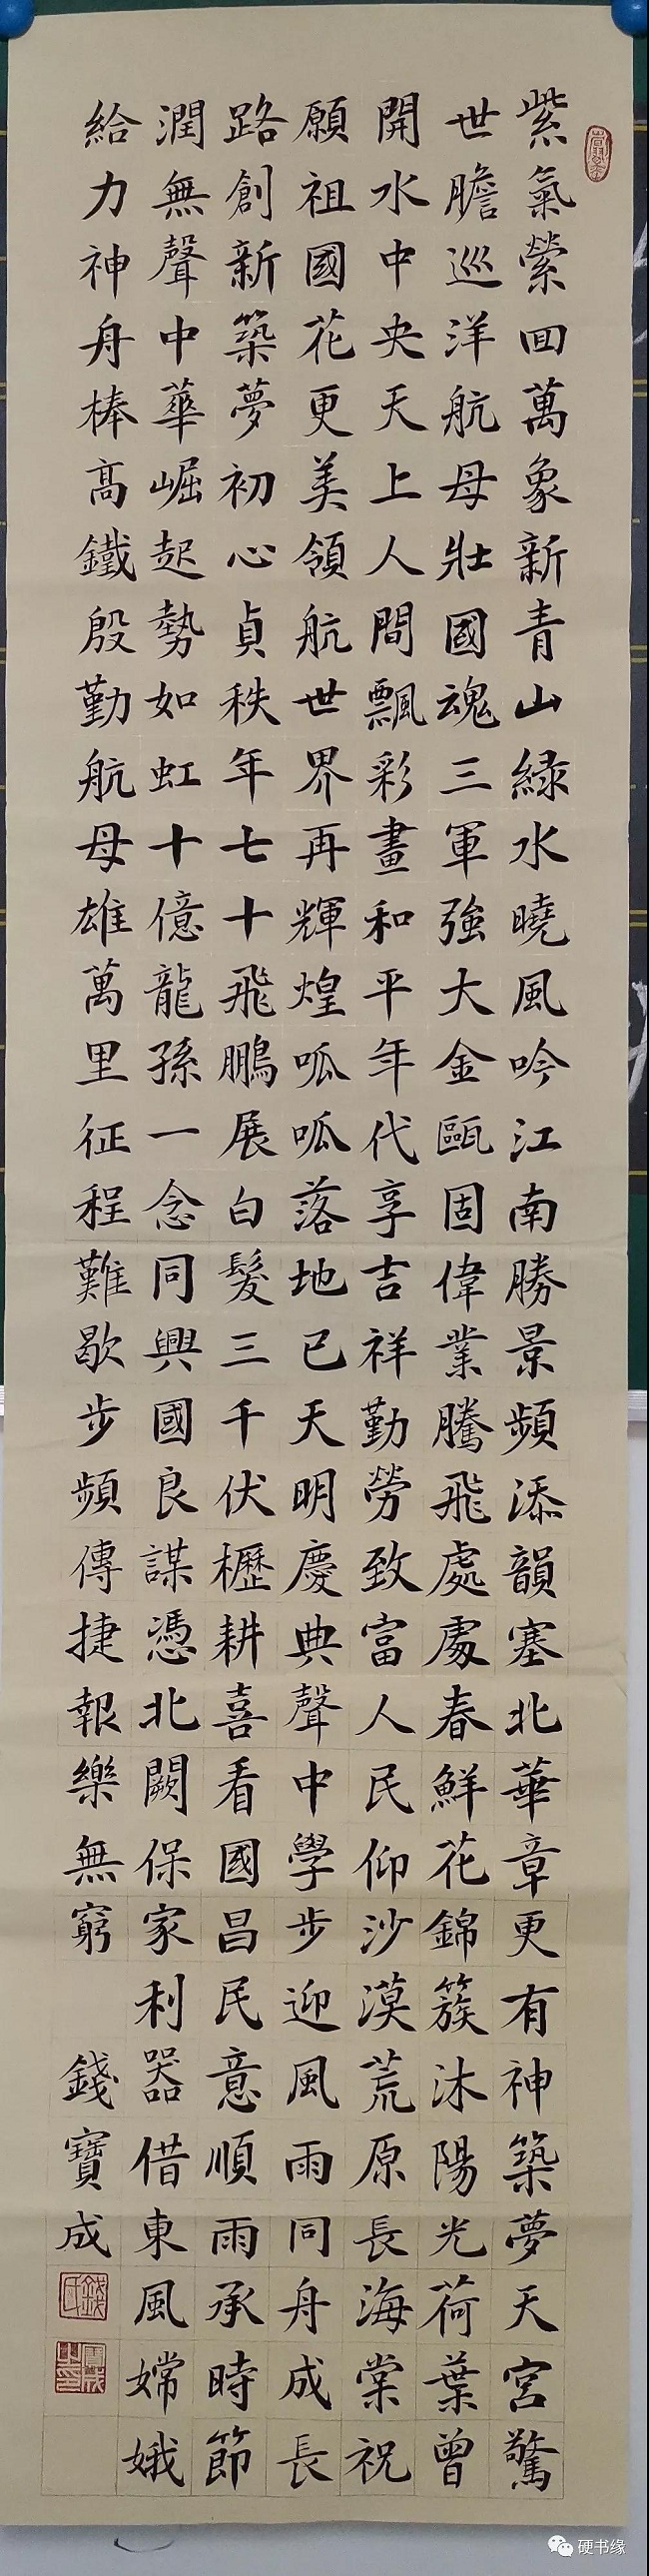 紫氣縈回萬象新青山緑水曉風吟江南勝景頻添韻塞北華章更有神築夢天宮驚
世膽巡洋航母壯國魂三軍強大金甌固偉業騰飛處處春鮮花錦簇沐陽光荷葉曾
開水中央天上人間飄彩畫和平年代享吉祥勤勞致富人民仰沙漠荒原長海棠祝
願祖國花更美領航世界再輝煌呱呱落地已天明慶典聲中學步迎風雨同舟成長
路創新築夢初心貞秩年七十飛鵬展白髮三千伏櫪耕喜看國昌民意順雨承時節
潤無聲中華崛起勢如虹十億龍孫一念同興國良謀憑北闕保家利器借東風嫦娥
給力神舟棒高鐵殷勤航母雄萬里征程難歇步頻傳捷報樂無窮
錢寶成
硬书缘